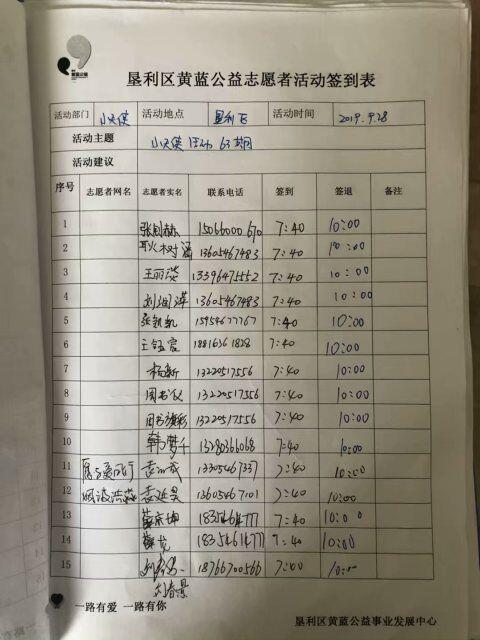 黄蓝公益
垦利区黄蓝公益志愿者活动签到表
活动部门 小交侠 活动地点 垦利区 活动时间 2019.9.28
活动主题 小交侠 活动 63期
活动建议
序号 志愿者网名 志愿者实名 联系电话 签到 签退 备注
1 15066000670 7:40 10:00
2 耿树涵 13605467483 7:40 10:00
3 王丽淡 13396475552 7:40 10:00
4 刘润泽 13605467483 7:40 10:00
5 张凯凯 15954677767 7:40 10:00
6 王钰宸 18816361828 7:40 10:00
7 杨新 13220517556 7:40 10:00
8 周书仪 13220517556 7:40 10:00
9 周书 13220517556 7:40 10:00
10 韩梦千 13280366068 7:40 10:00
11 13305467337 7:40 10:00
12 孟延昊 13605467101 7:40 10:00
13 18354611477 7:40 10:00
14 18354611477 7:40 10:00
15 18766700566 7:00 10:00
刘春景
一路有爱 一路有你
垦利区黄蓝公益事业发展中心